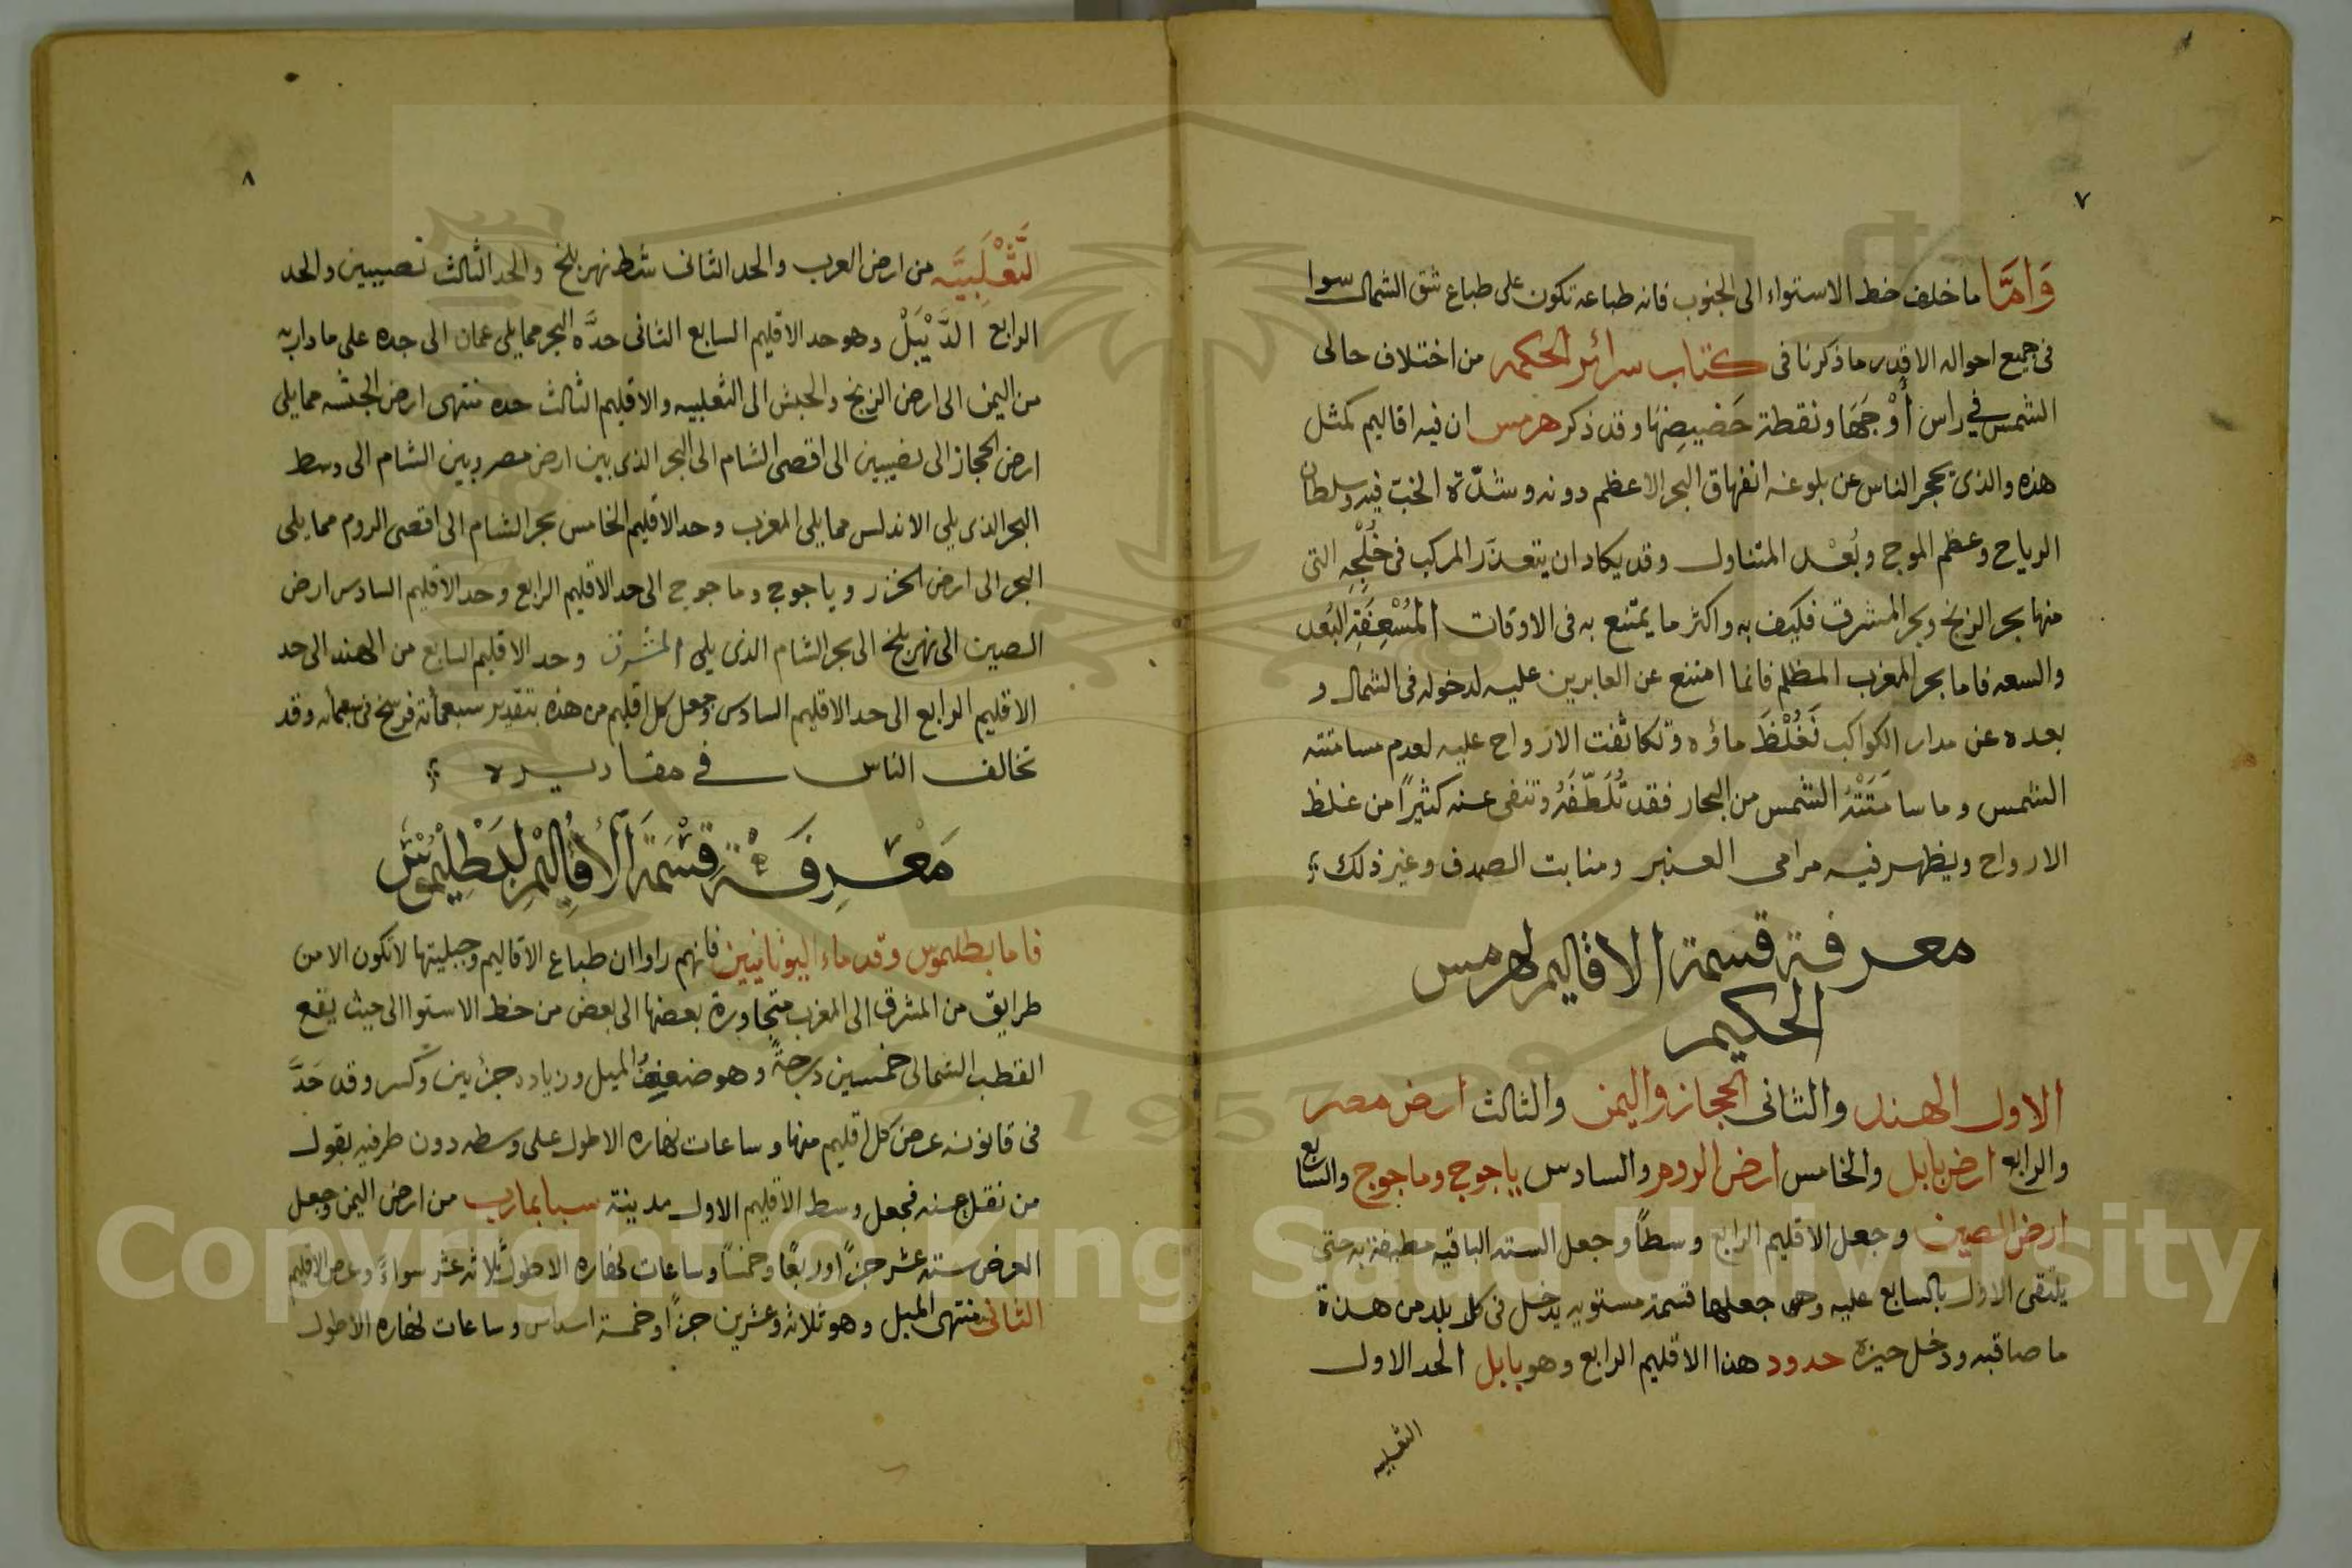 ٧
وَامَّا ما خلف خط الاستواء الى الجنوب فانه طباعه تكون على طباع شق الشمال سوا
فى جميع احواله الا قدر ما ذكرنا فى كتاب سرائر الحكمه من اختلاف حالى
الشمس في راس أَوْجَهَا ونقطة حَضيضِهَا وقد ذكر هرمس ان فيه اقاليم كمثل
هذه والذى يحجر الناس عن بلوغه انفهاق البحر الاعظم دونه وشدّة الخب فيه وسلطان
الرياح وعظم الموج وبُعْد المتناول وقد يكاد ان يتعذّر المركب فى خُلْجِه التى
منها بحر الزنج وبحر المشرق فكيف به واكثر ما يمتنع به فى الاوقات المُسْعِفَةِ البُعد
والسعه فاما بحر المغرب المظلم فانما امتنع عن العابرين عليه لدخوله فى الشمال و
بعده عن مدار الكواكب فَغُلْظَ ماؤه وتكاثفت الارواح عليه لعدم مسامتته
الشمس وما سامَتَتْهُ الشمس من البحار فقد تُلَطّفَهُ وتنفى عنه كثيرًا من غلظ
الارواح ويظهر فيه مرامى العنبر ومنابت الصدف وغير ذلك
معرفة قسمة الاقاليم لهرمس
الحكيم
الاول الهند والثانى الحجاز واليمن والثالث ارض مصر
والرابع ارض بابل والخامس ارض الروم والسادس ياجوج وماجوج والسابع
ارض الصين وجعل الاقليم الرابع وسطًا وجعل السته الباقيه مطيفة به حتى
يلتقى الاول بالسابع عليه وهى جعلها قسمة مستويه يدخل فى كل بلد من هذة
ما صاقبه ودخل حيزه حدود هذا الاقليم الرابع وهو بابل الحد الاول
الثعلبيه
٨
الثَّعْلَبِيَّه من ارض العرب والحد الثانى شط نهر بلخ والحد الثالث نصيبين والحد
الرابع الدَّيْبَلْ وهو حد الاقليم السابع الثانى حدَّه البحر مما يلى عمان الى جده على ما دار به
من اليمن الى ارض الزنج والحبش الى الثعلبيه والاقليم الثالث حده منتهى ارض الحبشه مما يلى
ارض الحجاز الى نصيبين الى اقصى الشام الى البحر الذى بين ارض مصر وبين الشام الى وسط
البحر الذى يلى الاندلس مما يلى المغرب وحد الاقليم الخامس بحر الشام الى اقصى الروم مما يلى
البحر الى ارض الخزر وياجوج وماجوج الى حد الاقليم الرابع وحد الاقليم السادس ارض
الصين الى نهر بلخ الى بحر الشام الذى يلى المشرق وحد الاقليم السابع من الهند الى حد
الاقليم الرابع الى حد الاقليم السادس وجعل كل اقليم من هذه بتقدير سبعمأئة فرسخ فى سبعمأئه وقد
تخالف الناس في مقاديره
مَعْرِفَة قِسْمَةَ الأَقَالِيْمِ لِبَطْلِيْمُوْسَ
فاما بطلموس وقدماء اليونانيين فانهم راوا ان طباع الاقاليم وجبليتها لا تكون الا من
طرايق من المشرق الى المغرب متجاورة بعضها الى بعض من خط الاستوا الى حيث يقع
القطب الشمالى خمسين درجةً وهو ضعفُ الميل وزياده جزئين وكسر وقد حَدَّ
فى قانونه عرض كل اقليم منها وساعات نهاره الاطول على وسطه دون طرفيه بقول
من نقل عنه فجعل وسط الاقليم الاول مدينة سبا بمارب من ارض اليمن وجعل
العرض سته عشر جزًا وربعًا وخمسًا وساعات نهاره الاطول ثلاثه عشر سواءً وعرض الاقليم
الثانى منتهى الميل وهو ثلاثه وعشرين جزًا وخمسة اسداس وساعات نهاره الاطول
Copyright © King Saud University
1957